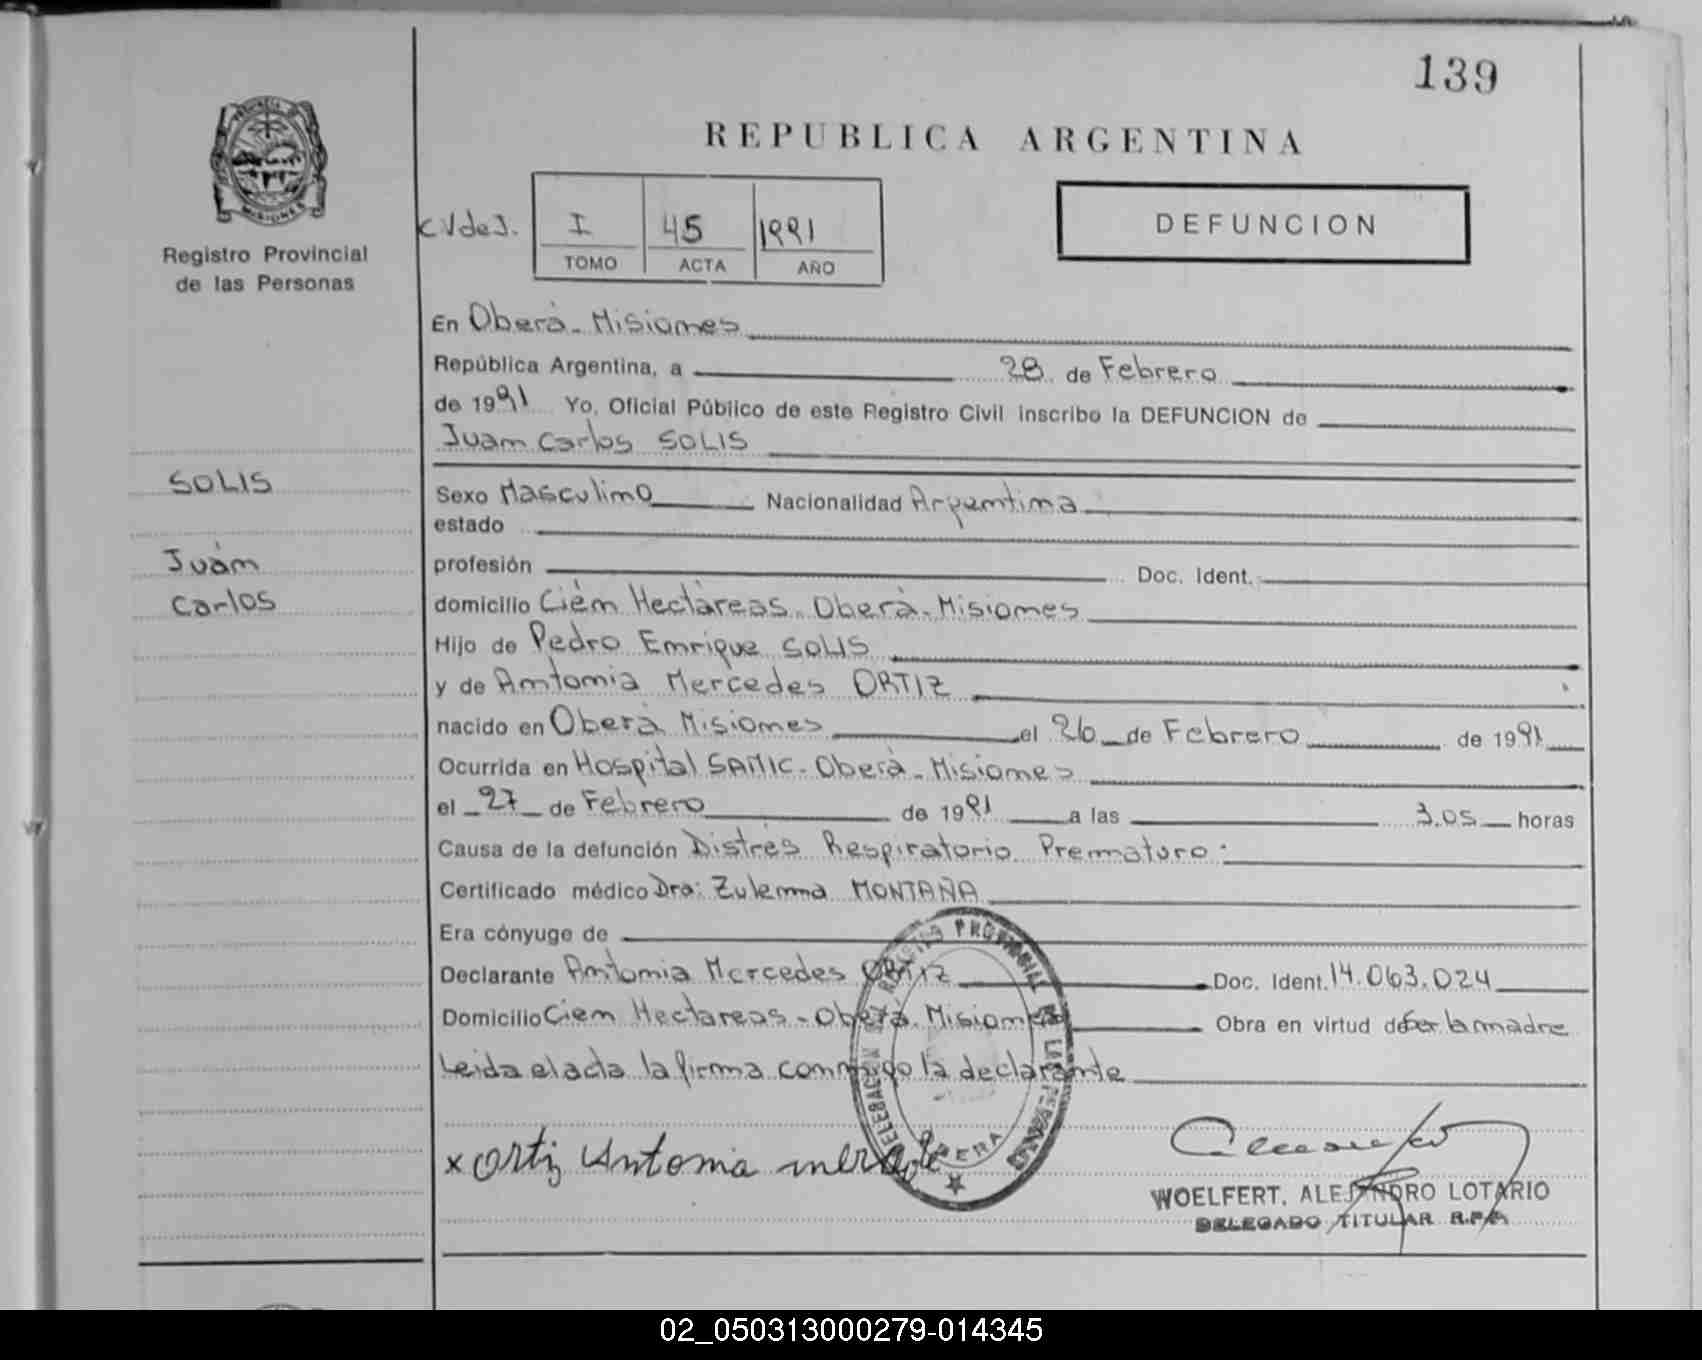 139
REPUBLICA ARGENTINA
PROVINCIA DE MISIONES
Registro Provincial
de las Personas
CVdeJ.
I 45 1991
TOMO ACTA AÑO
DEFUNCION
En Oberá - Misiones
República Argentina, a 28 de Febrero
de 1991 Yo, Oficial Público de este Registro Civil inscribo la DEFUNCION de
Juan Carlos SOLIS
SOLIS
Juan
Carlos
Sexo Masculino Nacionalidad Argentina
estado
profesión Doc. Ident.
domicilio Cién Hectáreas - Oberá - Misiones
Hijo de Pedro Enrique SOLIS
y de Antonia Mercedes ORTIZ
nacido en Oberá Misiones el 26 de Febrero de 1991
Ocurrida en Hospital SAMIC - Oberá - Misiones
el 27 de Febrero de 1991 a las 3.05 horas
Causa de la defunción Distrés Respiratorio Prematuro
Certificado médico Dra: Zulemma MONTAÑA
Era cónyuge de
Declarante Antonia Mercedes ORTIZ Doc. Ident. 14.063.024
Domicilio Cien Hectareas - Oberá - Misiones Obra en virtud de Ser la madre
Leida el acta la firma conmigo la declarante
x Ortiz Antonia
DELEGACION DEL REGISTRO PROVINCIAL DE LAS PERSONAS
OBERA
WOELFERT, ALEJANDRO LOTARIO
DELEGADO TITULAR R.P.P.
02_050313000279-014345